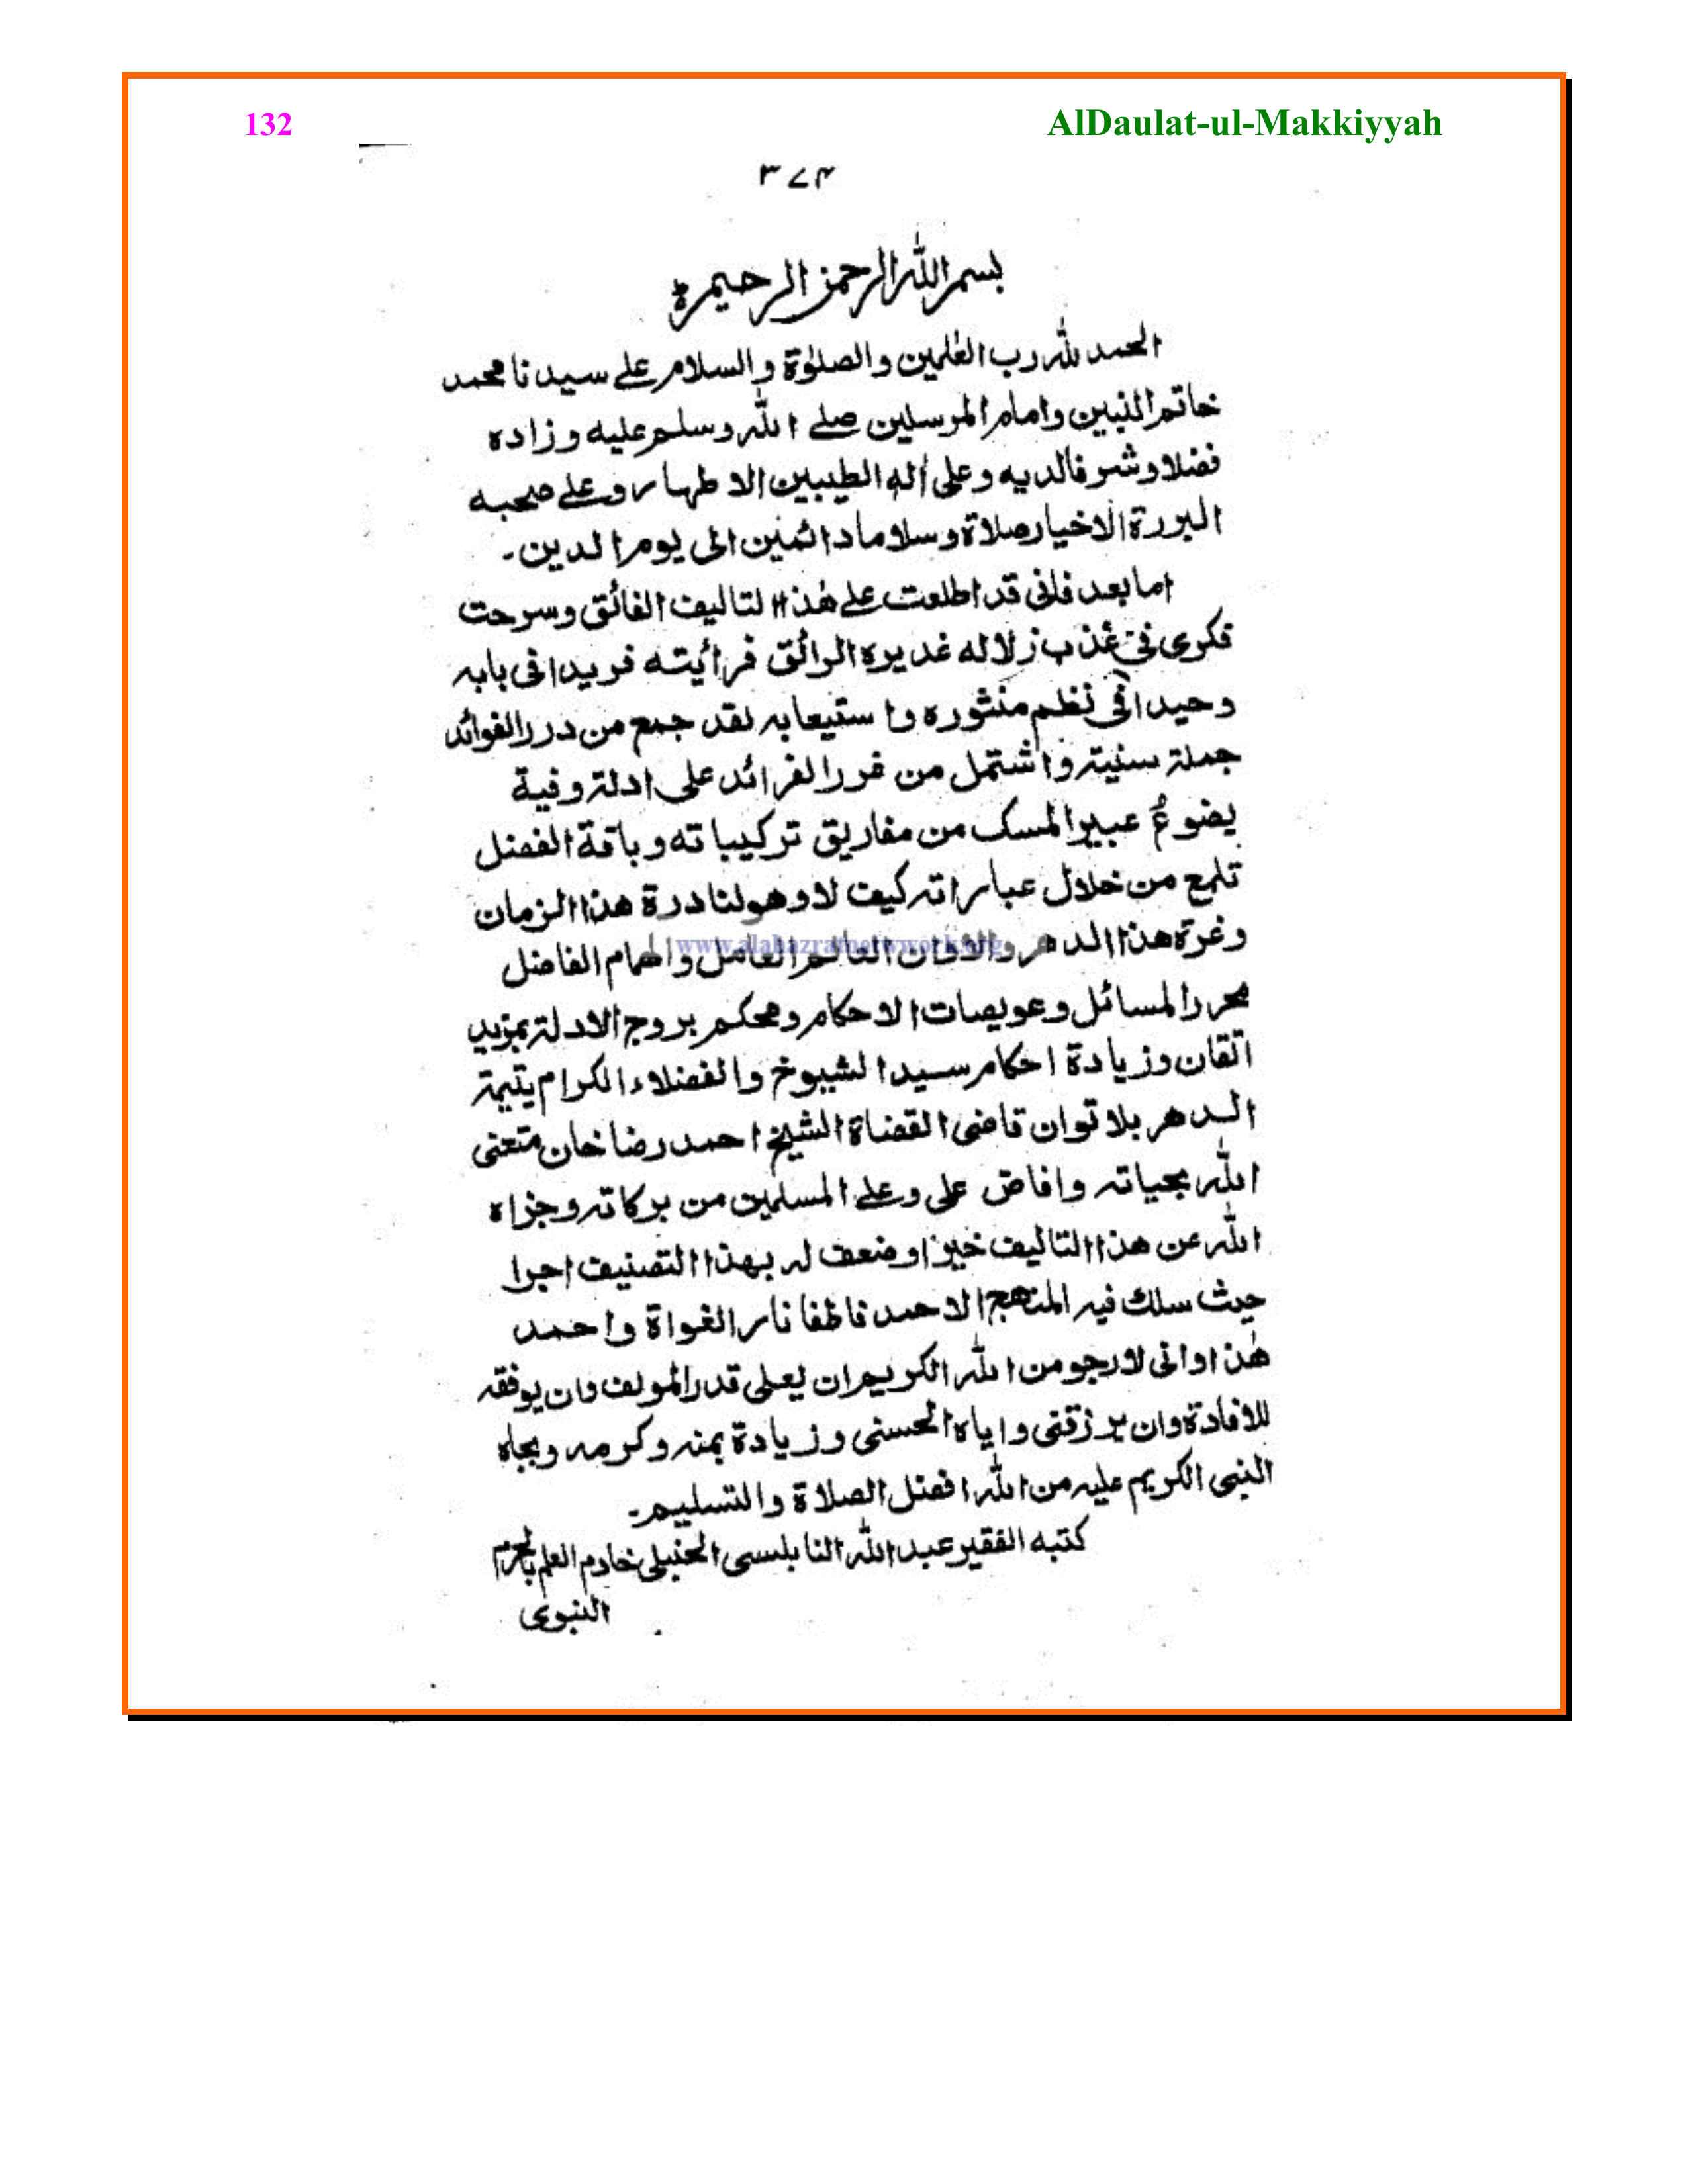 132 AlDaulat-ul-Makkiyyah
٣٧٤
بسم الله الرحمن الرحيم ه
الحمد لله رب العٰلمين والصلوٰة والسلام علے سيدنا محمد
خاتم النبين وامام المرسلين صلے الله وسلم عليه وزاده
فضلا وشرفا لديه وعلى اٰله الطيبين الاطهار وعلے صحبه
البررة الاخيار صلاة وسلاما دائمين الى يوم الدين۔
اما بعد فانى قد اطلعت علے هٰذا التاليف الفائق وسرحت
فكرى فى عذب زلاله غديره الرائق فرأيته فريدا فى بابه
وحيدا فى نظم منثوره واستيعابه لقد جمع من درر الفوائد
جملة سنية واشتمل من غرر الفرائد على ادلة وفية
يضوعُ عبير المسك من مفاريق تركيباته وباقة الفضل
تلمع من خلال عباراته كيف لا وهو لنادرة هذا الزمان
وغرة هذا الدهر والاوان العالم العامل والهمام الفاضل
www.alahazratnetwork.org
محرر المسائل وعويصات الاحكام ومحكم بروج الادلة بمزيد
اتقان وزيادة احكام سيد الشيوخ والفضلاء الكرام يتيمة
الدهر بلا توان قاضى القضاة الشيخ احمد رضا خان متعنى
الله بحياته وافاض على وعلے المسلمين من بركاته وجزاه
الله عن هذا التاليف خيرا وضعف له بهذا التصنيف اجرا
حيث سلك فيه المنهج الاحمد فاطفا نار الغواة واحمد
هٰذا وانى لارجو من الله الكريم ان يعلى قدر المولف وان يوفقه
للافادة وان يرزقنى واياه الحسنى وزيادة بمنه وكرمه وبجاه
النبى الكريم عليه من الله افضل الصلاة والتسليم۔
كتبه الفقير عبد الله النابلسى الحنبلى خادم العلم بالحرم
النبوى